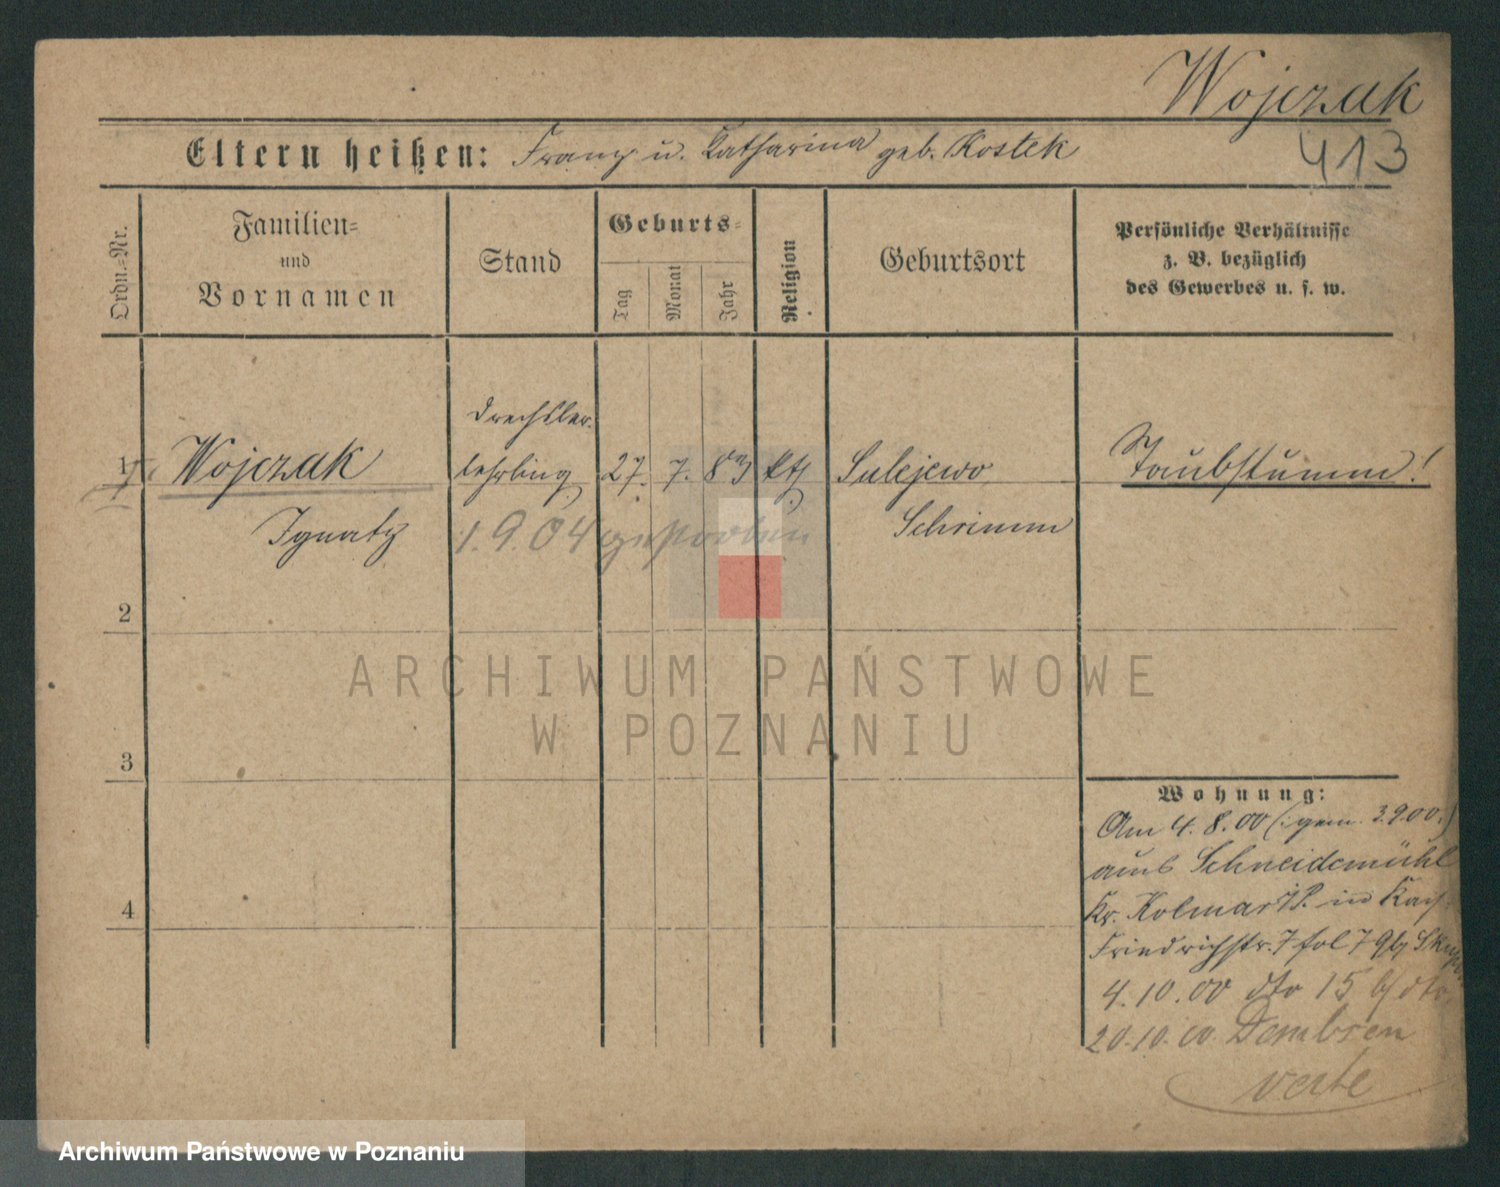 Wojczak
413
Eltern heißen: Franz u. Katharina geb. Kostek
Ordn.-Nr.
Familien-
und
Vornamen
Stand
Geburts-
Tag
Monat
Jahr
Religion
Geburtsort
Persönliche Verhältnisse
z. B. bezüglich
des Gewerbes u. s. w.
Drechsler-
1 Wojczak lehrling 27. 7. 83 kth Sulejewo Taubstumm!
Ignatz 1.9.04 gestorben Schrimm
2
3
4
ARCHIWUM PAŃSTWOWE
W POZNANIU
Wohnung:
Am 4. 8. 00 (: gem. 3.9.00.)
aus Schneidemühl
Kr. Kolmar i/P. in
Friedrichstr. 7
4. 10. 00 dto 15 b/ dto
20. 10. 00. Dembsen
verte
Archiwum Państwowe w Poznaniu